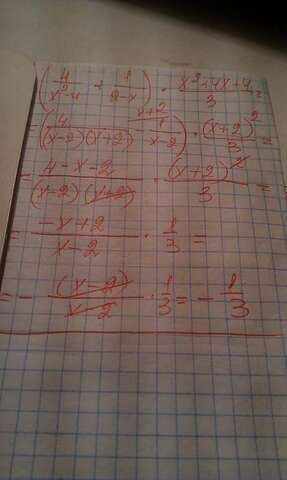 (4/(x²-4) + 1/(2-x)) · (x²+4x+4)/3 =
= (4/((x-2)(x+2)) - 1^(x+2)/(x-2)) · (x+2)²/3 =
= (4-x-2)/((x-2)(x+2)) · (x+2)²/3 =
= (-x+2)/(x-2) · 1/3 =
= - (x-2)/(x-2) · 1/3 = - 1/3